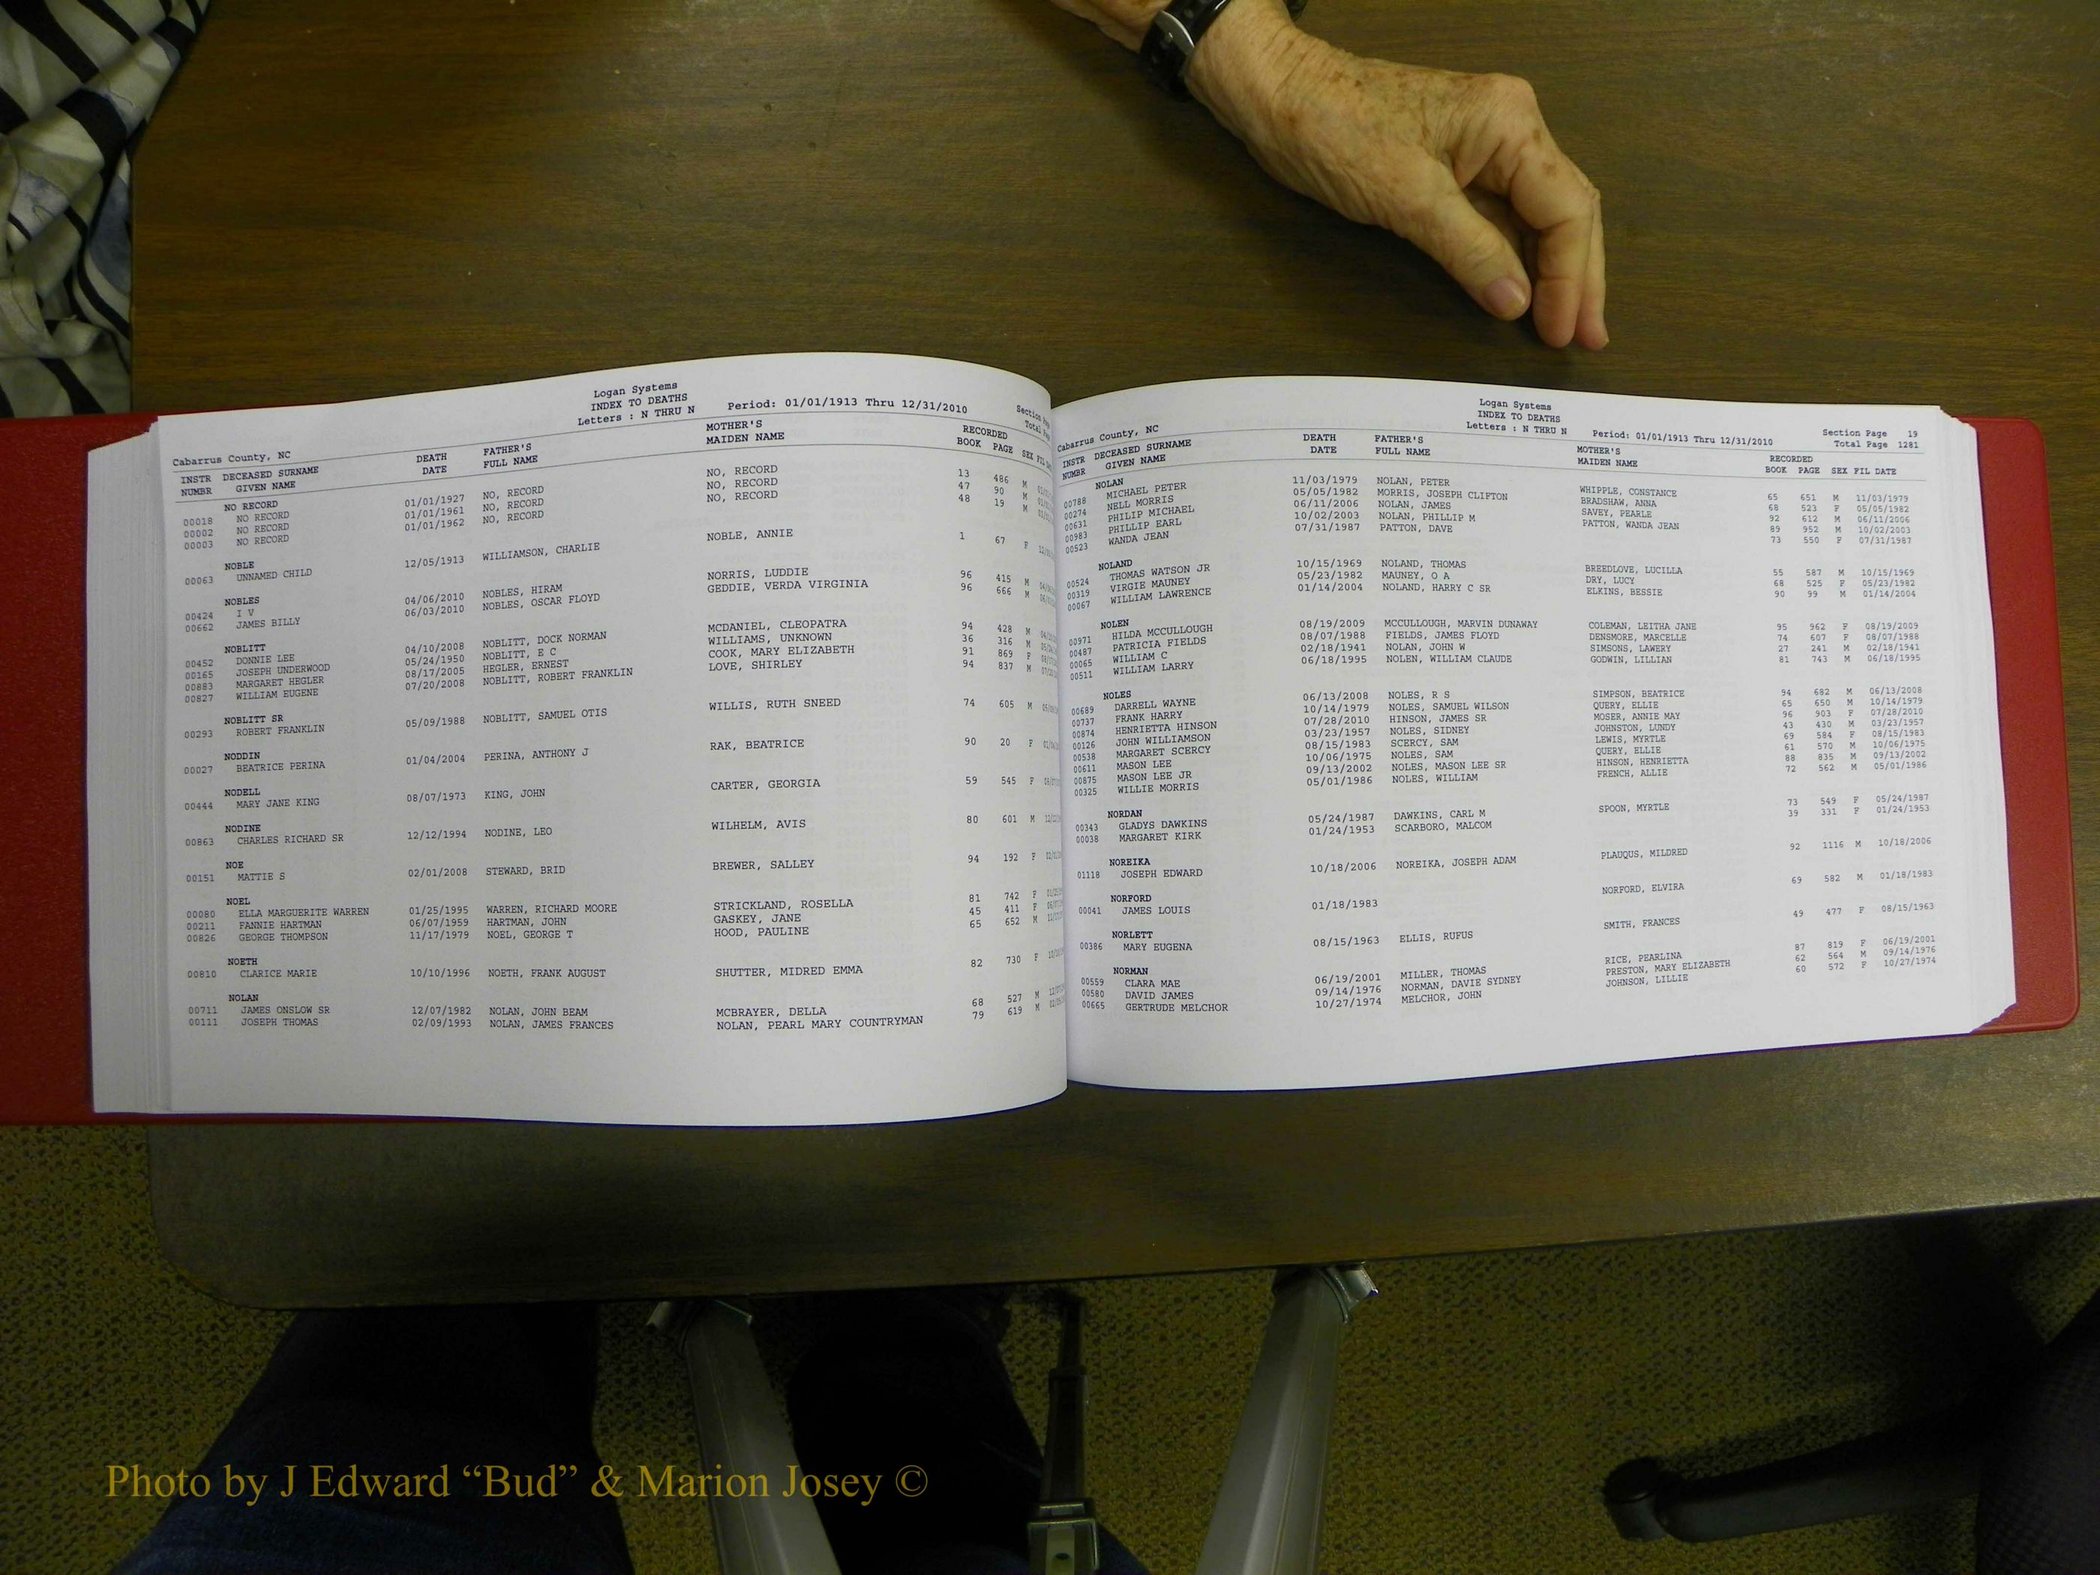 Logan Systems
INDEX TO DEATHS
Letters : N THRU N Period: 01/01/1913 Thru 12/31/2010
Cabarrus County, NC
INSTR DECEASED SURNAME DEATH FATHER'S MOTHER'S RECORDED
NUMBR GIVEN NAME DATE FULL NAME MAIDEN NAME BOOK PAGE SEX
NO RECORD
00018 NO RECORD 01/01/1927 NO, RECORD NO, RECORD 13 486 M
00002 NO RECORD 01/01/1961 NO, RECORD NO, RECORD 47 90 M
00003 NO RECORD 01/01/1962 NO, RECORD NO, RECORD 48 19 M
NOBLE
00063 UNNAMED CHILD 12/05/1913 WILLIAMSON, CHARLIE NOBLE, ANNIE 1 67 F
NOBLES
00424 I V 04/06/2010 NOBLES, HIRAM NORRIS, LUDDIE 96 415 M
00662 JAMES BILLY 06/03/2010 NOBLES, OSCAR FLOYD GEDDIE, VERDA VIRGINIA 96 666 M
NOBLITT
00452 DONNIE LEE 04/10/2008 NOBLITT, DOCK NORMAN MCDANIEL, CLEOPATRA 94 428 M
00165 JOSEPH UNDERWOOD 05/24/1950 NOBLITT, E C WILLIAMS, UNKNOWN 36 316 M
00883 MARGARET HEGLER 08/17/2005 HEGLER, ERNEST COOK, MARY ELIZABETH 91 869 F
00827 WILLIAM EUGENE 07/20/2008 NOBLITT, ROBERT FRANKLIN LOVE, SHIRLEY 94 837 M
NOBLITT SR
00293 ROBERT FRANKLIN 05/09/1988 NOBLITT, SAMUEL OTIS WILLIS, RUTH SNEED 74 605 M
NODDIN
00027 BEATRICE PERINA 01/04/2004 PERINA, ANTHONY J RAK, BEATRICE 90 20 F
NODELL
00444 MARY JANE KING 08/07/1973 KING, JOHN CARTER, GEORGIA 59 545 F
NODINE
00863 CHARLES RICHARD SR 12/12/1994 NODINE, LEO WILHELM, AVIS 80 601 M
NOE
00151 MATTIE S 02/01/2008 STEWARD, BRID BREWER, SALLEY 94 192 F
NOEL
00080 ELLA MARGUERITE WARREN 01/25/1995 WARREN, RICHARD MOORE STRICKLAND, ROSELLA 81 742 F
00211 FANNIE HARTMAN 06/07/1959 HARTMAN, JOHN GASKEY, JANE 45 411 F
00826 GEORGE THOMPSON 11/17/1979 NOEL, GEORGE T HOOD, PAULINE 65 652 M
NOETH
00810 CLARICE MARIE 10/10/1996 NOETH, FRANK AUGUST SHUTTER, MIDRED EMMA 82 730 F
NOLAN
00711 JAMES ONSLOW SR 12/07/1982 NOLAN, JOHN BEAM MCBRAYER, DELLA 68 527 M
00111 JOSEPH THOMAS 02/09/1993 NOLAN, JAMES FRANCES NOLAN, PEARL MARY COUNTRYMAN 79 619 M
Logan Systems
INDEX TO DEATHS
Letters : N THRU N Period: 01/01/1913 Thru 12/31/2010 Section Page 19
Cabarrus County, NC Total Page 1281
INSTR DECEASED SURNAME DEATH FATHER'S MOTHER'S RECORDED
NUMBR GIVEN NAME DATE FULL NAME MAIDEN NAME BOOK PAGE SEX FIL DATE
NOLAN
00788 MICHAEL PETER 11/03/1979 NOLAN, PETER WHIPPLE, CONSTANCE 65 651 M 11/03/1979
00274 NELL MORRIS 05/05/1982 MORRIS, JOSEPH CLIFTON BRADSHAW, ANNA 68 523 F 05/05/1982
00631 PHILIP MICHAEL 06/11/2006 NOLAN, JAMES SAVEY, PEARLE 92 612 M 06/11/2006
00983 PHILLIP EARL 10/02/2003 NOLAN, PHILLIP M PATTON, WANDA JEAN 89 952 M 10/02/2003
00523 WANDA JEAN 07/31/1987 PATTON, DAVE 73 550 F 07/31/1987
NOLAND
00524 THOMAS WATSON JR 10/15/1969 NOLAND, THOMAS BREEDLOVE, LUCILLA 55 587 M 10/15/1969
00319 VIRGIE MAUNEY 05/23/1982 MAUNEY, O A DRY, LUCY 68 525 F 05/23/1982
00067 WILLIAM LAWRENCE 01/14/2004 NOLAND, HARRY C SR ELKINS, BESSIE 90 99 M 01/14/2004
NOLEN
00971 HILDA MCCULLOUGH 08/19/2009 MCCULLOUGH, MARVIN DUNAWAY COLEMAN, LEITHA JANE 95 962 F 08/19/2009
00487 PATRICIA FIELDS 08/07/1988 FIELDS, JAMES FLOYD DENSMORE, MARCELLE 74 607 F 08/07/1988
00065 WILLIAM C 02/18/1941 NOLAN, JOHN W SIMSONS, LAWERY 27 241 M 02/18/1941
00511 WILLIAM LARRY 06/18/1995 NOLEN, WILLIAM CLAUDE GODWIN, LILLIAN 81 743 M 06/18/1995
NOLES
00689 DARRELL WAYNE 06/13/2008 NOLES, R S SIMPSON, BEATRICE 94 682 M 06/13/2008
00737 FRANK HARRY 10/14/1979 NOLES, SAMUEL WILSON QUERY, ELLIE 65 650 M 10/14/1979
00874 HENRIETTA HINSON 07/28/2010 HINSON, JAMES SR MOSER, ANNIE MAY 96 903 F 07/28/2010
00126 JOHN WILLIAMSON 03/23/1957 NOLES, SIDNEY JOHNSTON, LUNDY 43 430 M 03/23/1957
00538 MARGARET SCERCY 08/15/1983 SCERCY, SAM LEWIS, MYRTLE 69 584 F 08/15/1983
00611 MASON LEE 10/06/1975 NOLES, SAM QUERY, ELLIE 61 570 M 10/06/1975
00875 MASON LEE JR 09/13/2002 NOLES, MASON LEE SR HINSON, HENRIETTA 88 835 M 09/13/2002
00325 WILLIE MORRIS 05/01/1986 NOLES, WILLIAM FRENCH, ALLIE 72 562 M 05/01/1986
NORDAN
00343 GLADYS DAWKINS 05/24/1987 DAWKINS, CARL M SPOON, MYRTLE 73 549 F 05/24/1987
00038 MARGARET KIRK 01/24/1953 SCARBORO, MALCOM 39 331 F 01/24/1953
NOREIKA
01118 JOSEPH EDWARD 10/18/2006 NOREIKA, JOSEPH ADAM PLAUQUS, MILDRED 92 1116 M 10/18/2006
NORFORD
00041 JAMES LOUIS 01/18/1983 NORFORD, ELVIRA 69 582 M 01/18/1983
NORLETT
00386 MARY EUGENA 08/15/1963 ELLIS, RUFUS SMITH, FRANCES 49 477 F 08/15/1963
NORMAN
00559 CLARA MAE 06/19/2001 MILLER, THOMAS RICE, PEARLINA 87 819 F 06/19/2001
00580 DAVID JAMES 09/14/1976 NORMAN, DAVIE SYDNEY PRESTON, MARY ELIZABETH 62 564 M 09/14/1976
00665 GERTRUDE MELCHOR 10/27/1974 MELCHOR, JOHN JOHNSON, LILLIE 60 572 F 10/27/1974
Photo by J Edward “Bud” & Marion Josey ©